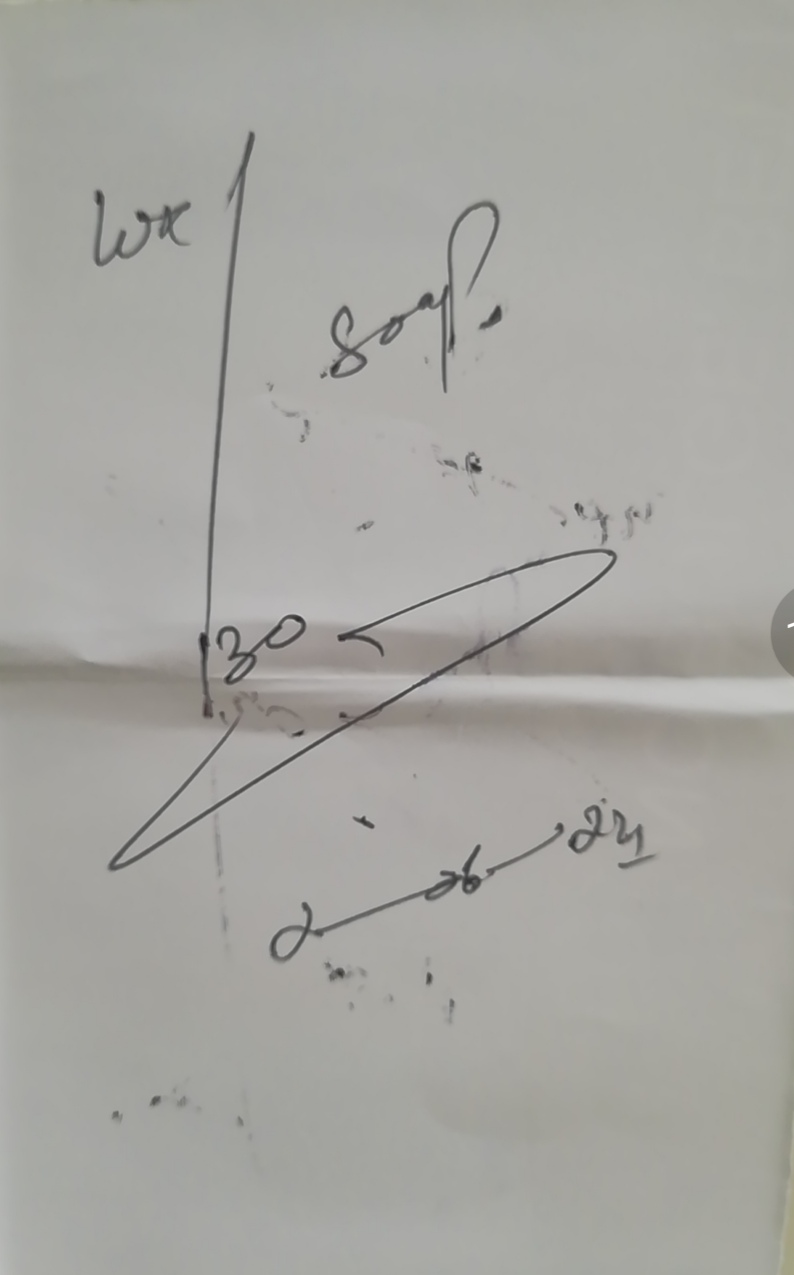 Wx
soap.
30
2-06-24